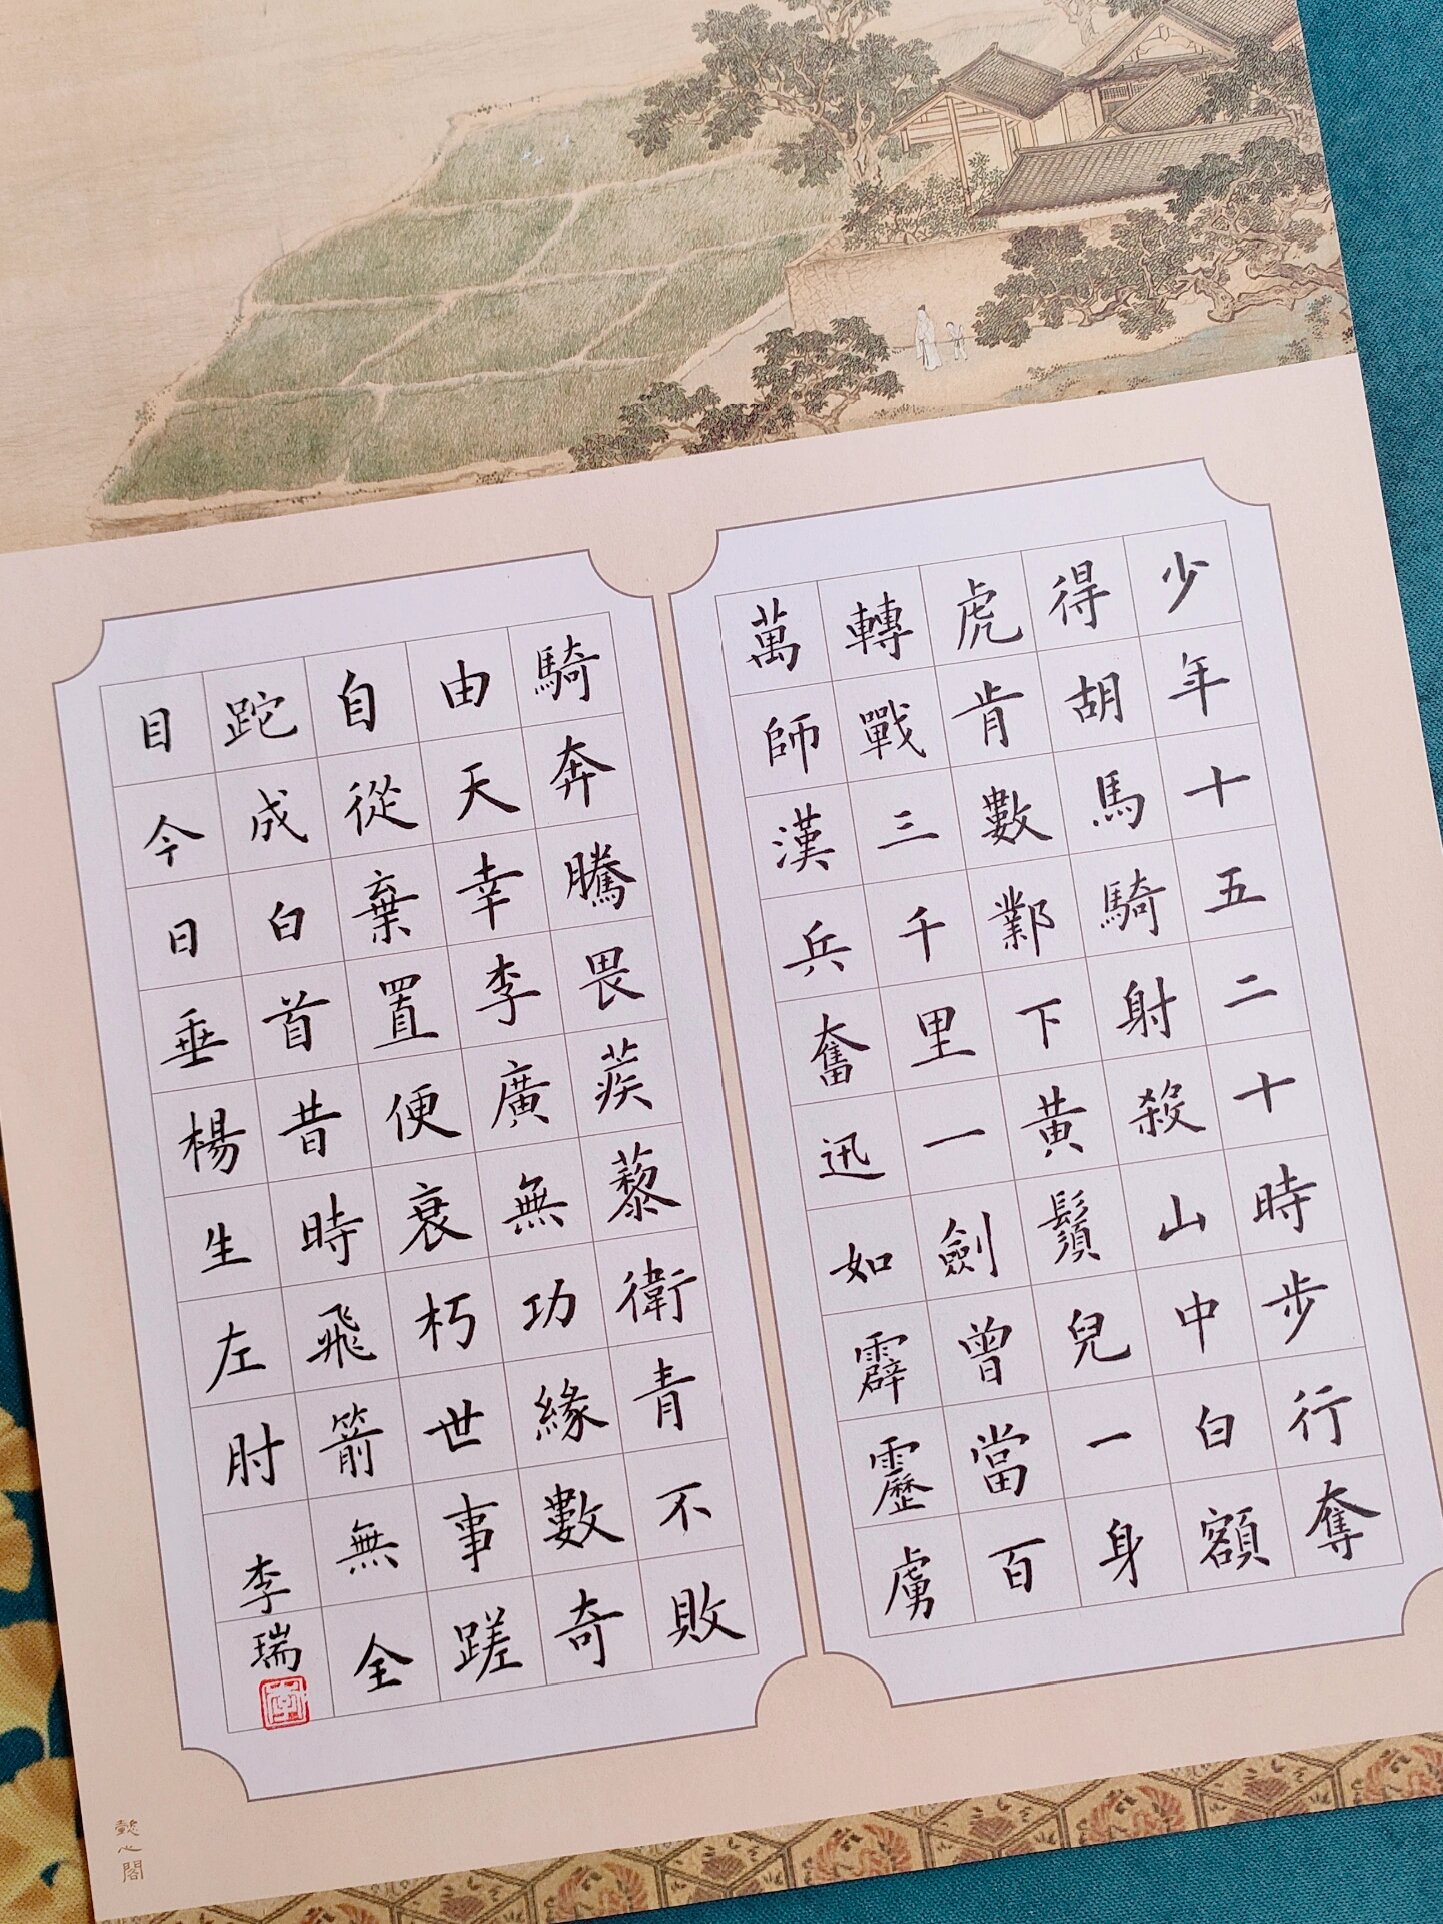 少年十五二十時步行奪
得胡馬騎射殺山中白額
虎肯數鄴下黃鬚兒一身
轉戰三千里一劍曾當百
萬師漢兵奮迅如霹靂虜
騎奔騰畏蒺藜衛青不敗
由天幸李廣無功緣數奇
自從棄置便衰朽世事蹉
跎成白首昔時飛箭無全
目今日垂楊生左肘
李瑞
懿心閣